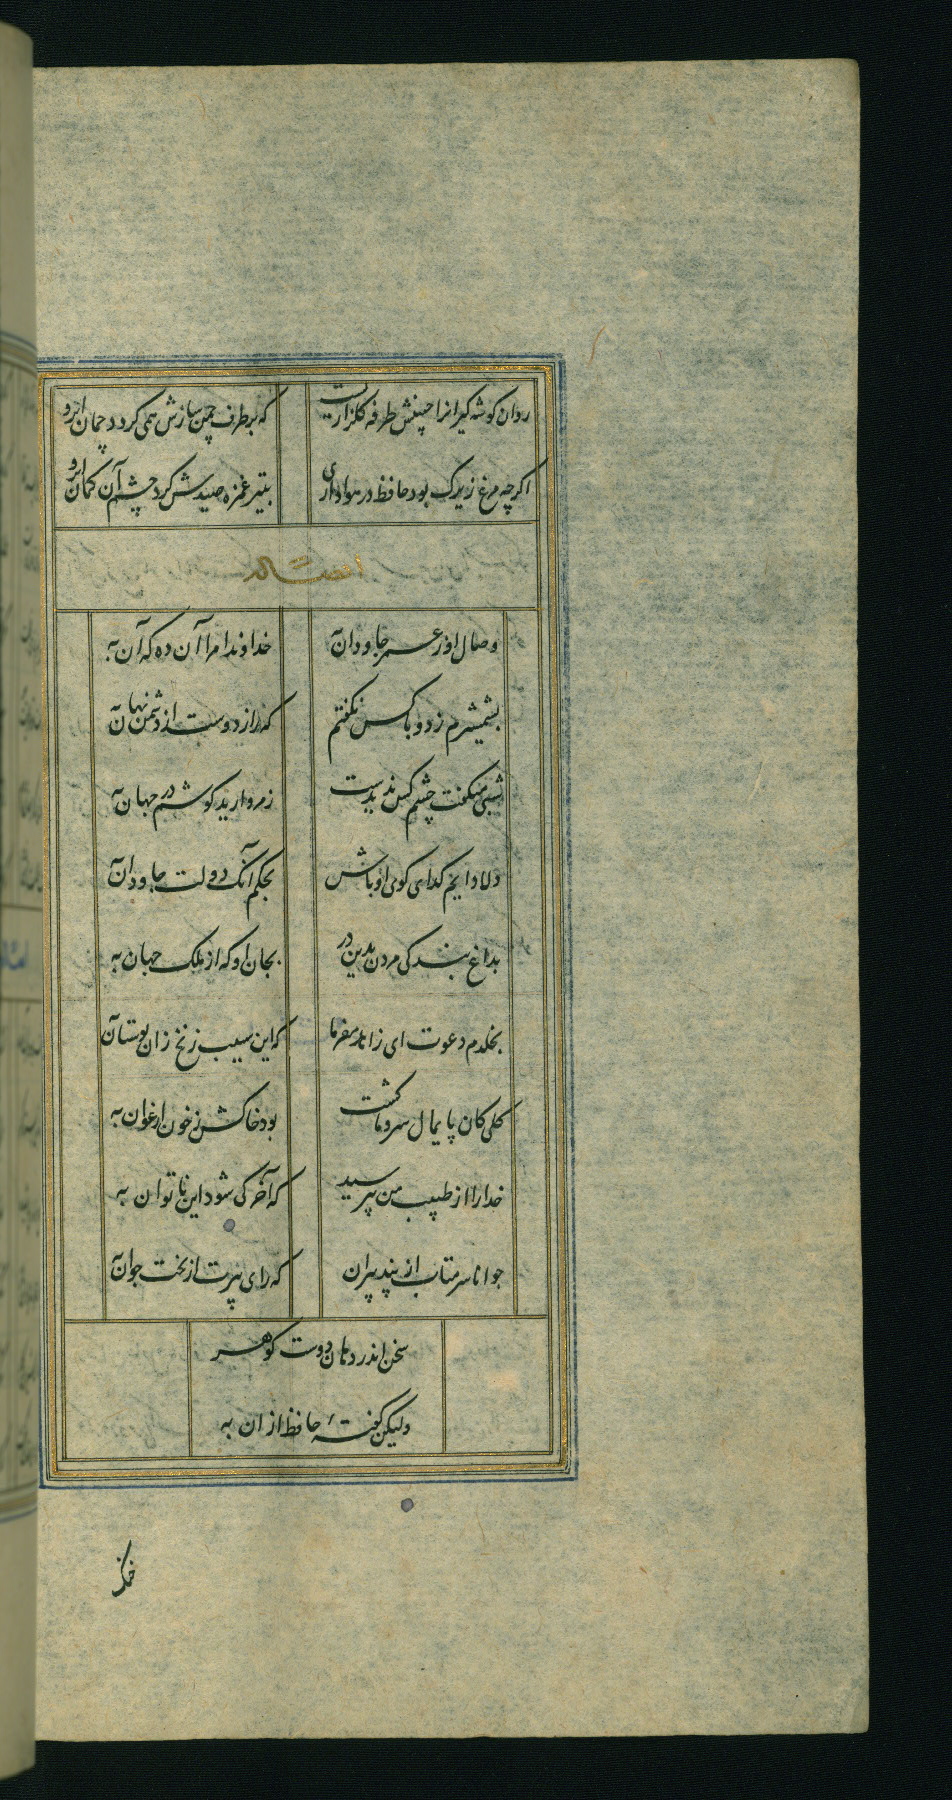 روان کوشه کیرانرا جبینش طرفه کلزاریست که بر طرف چمن زارش همی کردد چمان ابرو
اکرچه مرغ زیرک بود حافظ در هواداری بتیر غمزه صیدش کرد چشم آن کمان ابرو
وصال او ز عمر جاودان به خداوندا مرا آن ده که آن به
بشمشیرم زد و با کس نکفتم که راز دوست از دشمن نهان به
شبی میکفت چشم کس ندیدست ز مروارید کوشم در جهان به
دلا دایم کدای کوی او باش بحکم آنک دولت جاودان به
بداغ بندکی مردن بدین در بجان او که از ملک جهان به
بخلدم دعوت ای زاهد مفرما که این سیب زنخ زان بوستان به
کلی کان پایمال سرو ما کشت بود خاکش ز خون ارغوان به
خدا را از طبیب من بپرسید که آخر کی شود این ناتوان به
جوانا سر متاب از پند پیران که رای پیرت از بخت جوان به
سخن اندر دهان دوست کوهر
ولیکن کفتهٔ حافظ از ان به